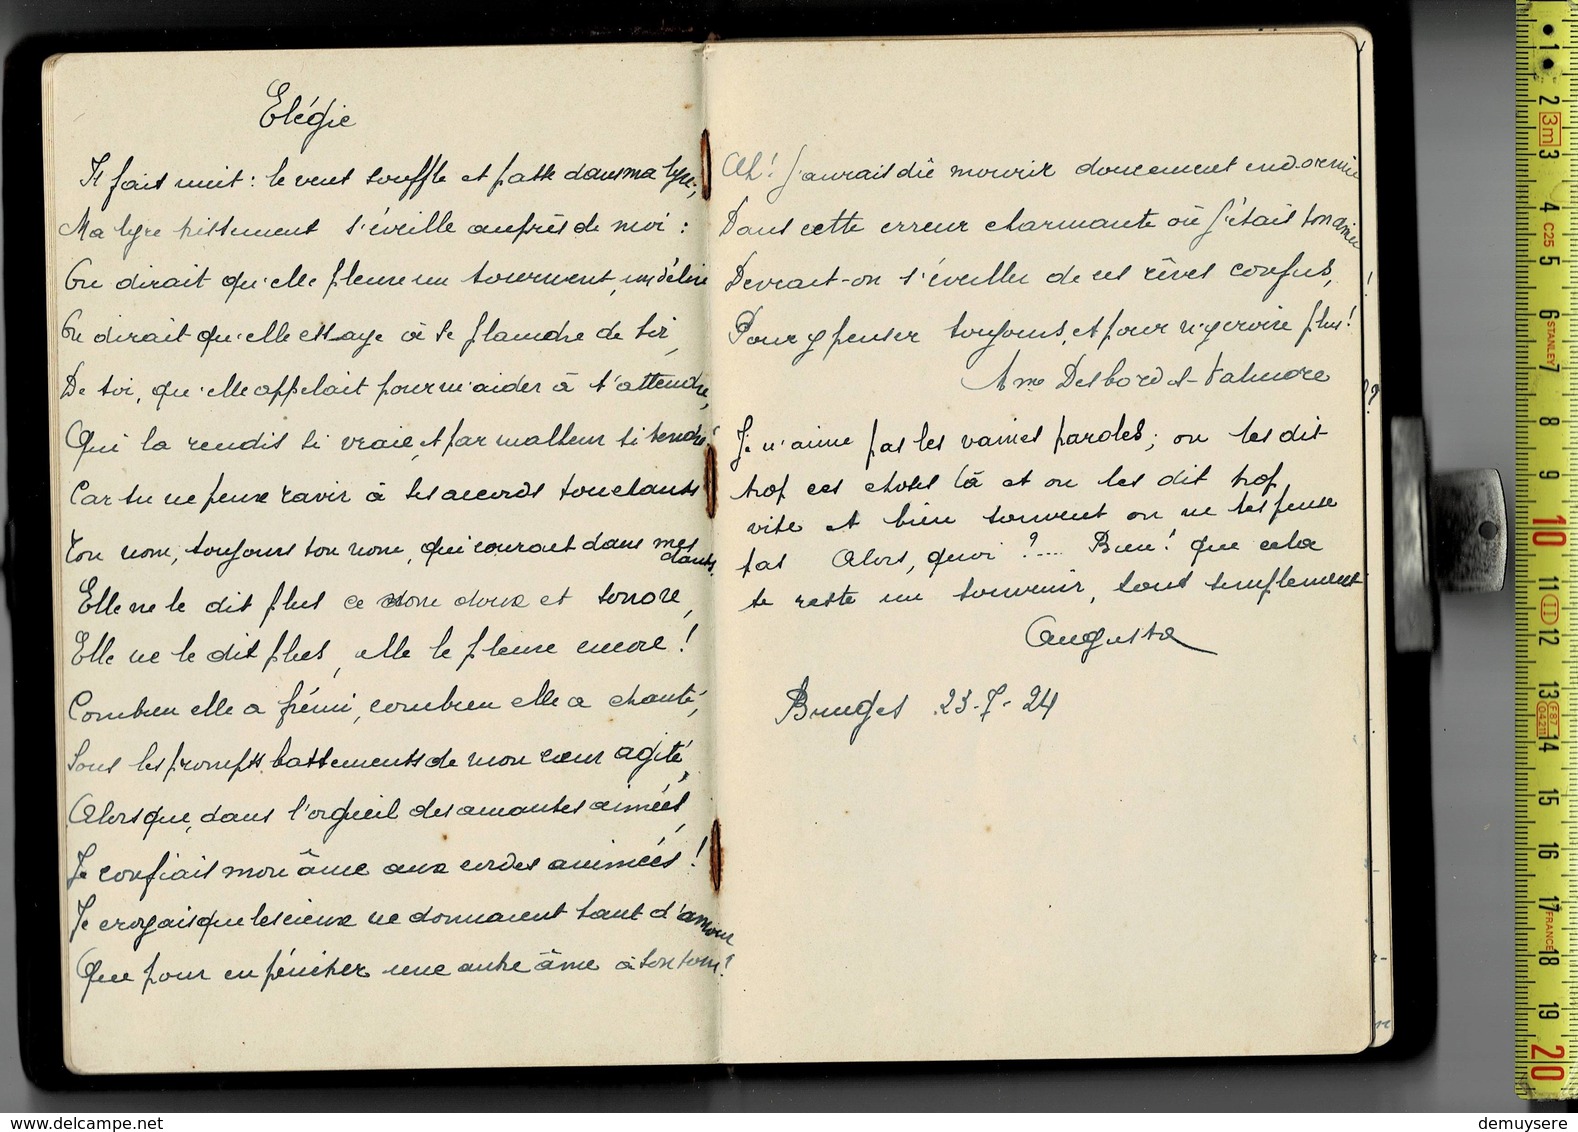 Elégie
Il fait nuit : le vent souffle et passe dans ma lyre;
Ma lyre tristement s'éveille auprès de moi :
On dirait qu'elle pleure un tourment, un délire
On dirait qu'elle essaye à se plaindre de toi,
De toi, qu'elle appelait pour m'aider à t'attendre,
Qui la rendis si vraie, et par malheur si tendre!
Car tu ne peux ravir à ses accords touchants
Ton nom, toujours ton nom, qui courait dans mes
chants.
Elle ne le dit plus ce nom doux et sonore,
Elle ne le dit plus, elle le pleure encore !
Combien elle a frémi, combien elle a chanté,
Sous les prompts battements de mon cœur agité,
Alors que, dans l'orgueil des amantes aimées,
Je confiais mon âme aux cordes animées !
Je croyais que les cieux ne donnaient tant d'amour
Que pour en pénétrer une autre âme à son tour!
Ah! j'aurais dû mourir doucement endormie
Dans cette erreur charmante où j'étais ton amie
Devrait-on s'éveiller de ces rêves confus,
Pour y penser toujours, et pour n'y croire plus!
Desbordes-Valmore
Je n'aime pas les vaines paroles; on les dit
trop ces choses là et on les dit trop
vite et bien souvent on ne les pense
pas Alors, quoi ?.... Bien! que cela
te reste un souvenir, tout simplement
Augusta
Bruges 23-7-24
1
2
3m
3
4
C25
5
6
STANLEY
7
8
9
10
11
II
12
13
F87
0421
14
15
16
17
FRANCE
18
19
20
www.delcampe.net
demuysere